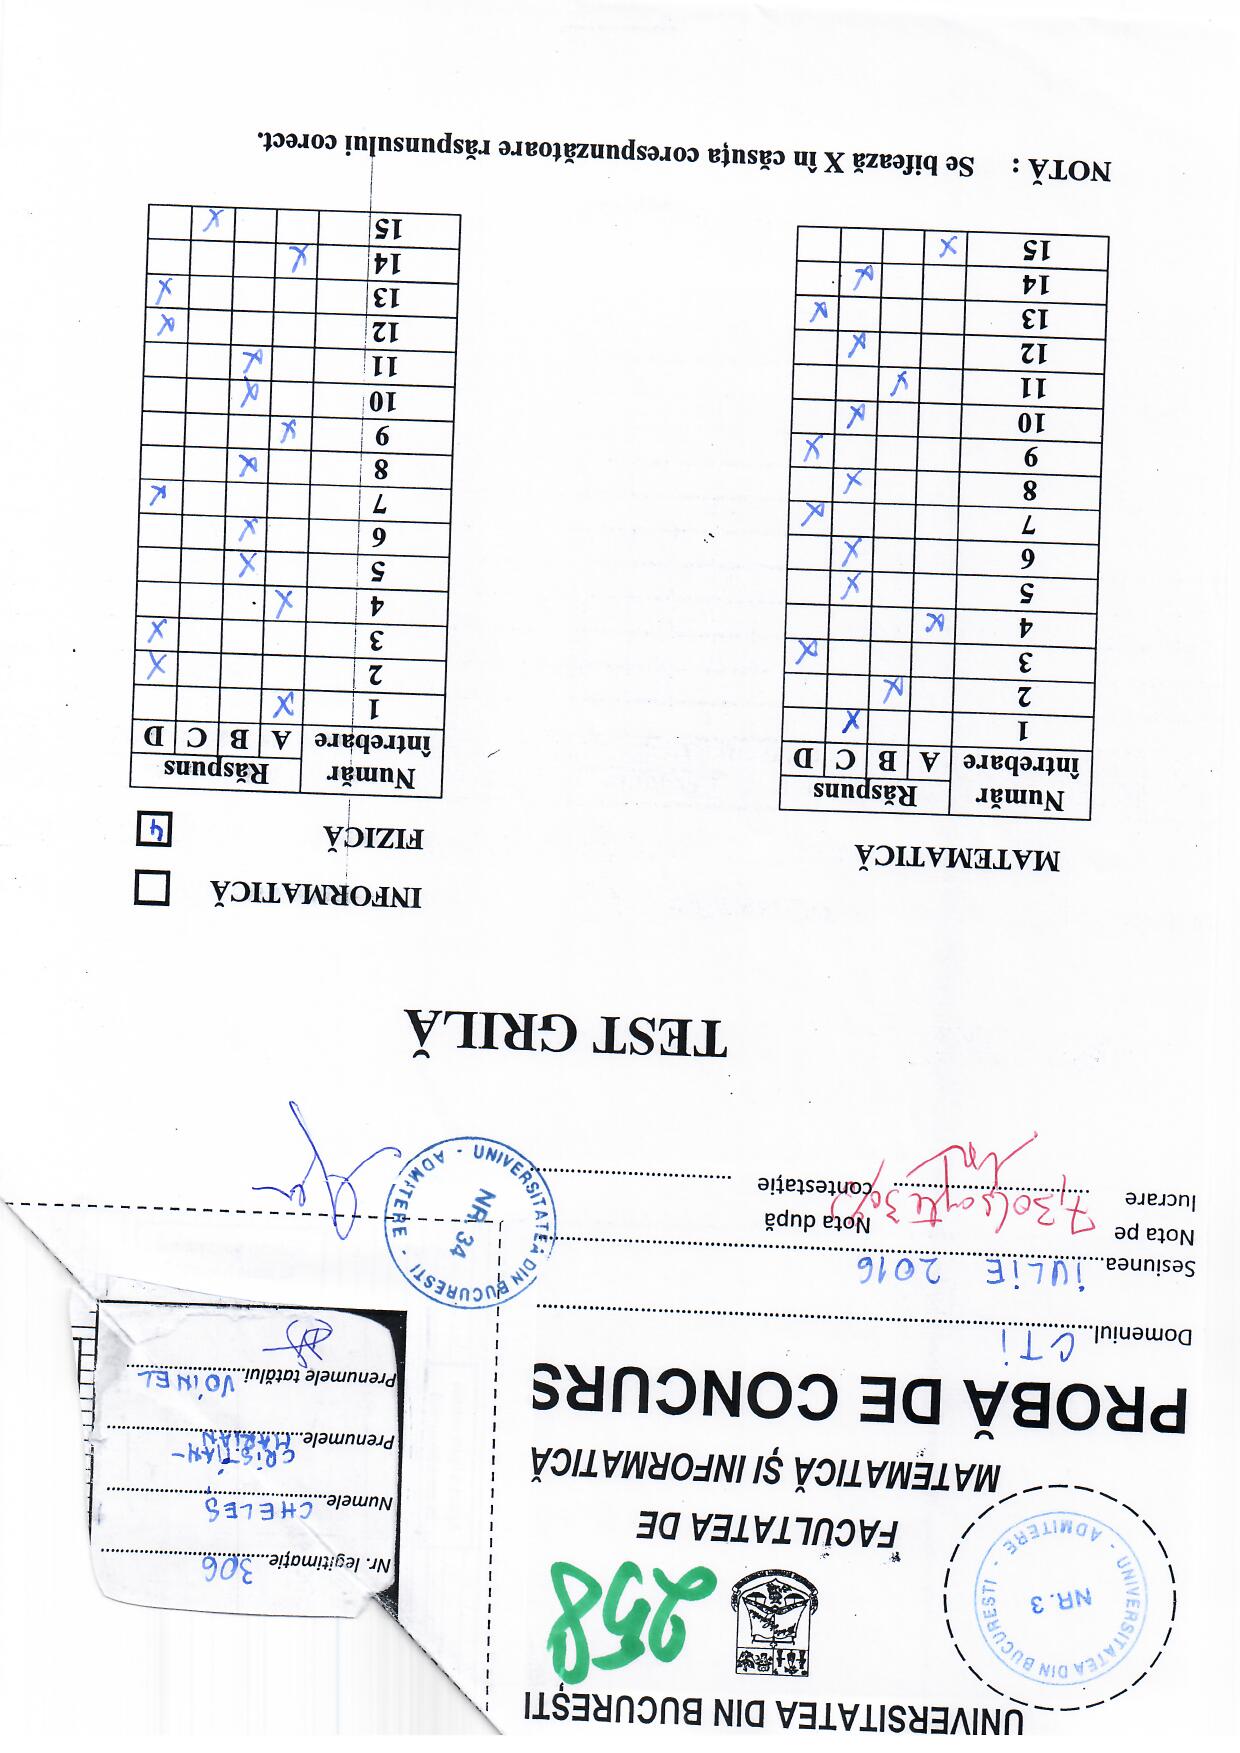 UNIVERSITATEA DIN BUCUREȘTI
258
FACULTATEA DE
MATEMATICĂ ȘI INFORMATICĂ
PROBĂ DE CONCURS
UNIVERSITATEA DIN BUCURESTI - ADMITERE -
NR. 3
Nr. legitimație 306
Numele CHELEȘ
Prenumele CRISTIAN-
MARIAN
Prenumele tatălui VOINEL
Domeniul CTI
Sesiunea IULIE 2016
Nota pe
lucrare 7,30 (șapte 30%)
Nota după
contestație
UNIVERSITATEA DIN BUCURESTI - ADMITERE -
NR. 34
TEST GRILĂ
INFORMATICĂ
MATEMATICĂ
FIZICĂ 4
Număr întrebare Răspuns
A B C D
1 X
2 X
3 X
4 X
5 X
6 X
7 X
8 X
9 X
10 X
11 X
12 X
13 X
14 X
15 X
Număr întrebare Răspuns
A B C D
1 X
2 X
3 X
4 X
5 X
6 X
7 X
8 X
9 X
10 X
11 X
12 X
13 X
14 X
15 X
NOTĂ : Se bifează X în căsuța corespunzătoare răspunsului corect.